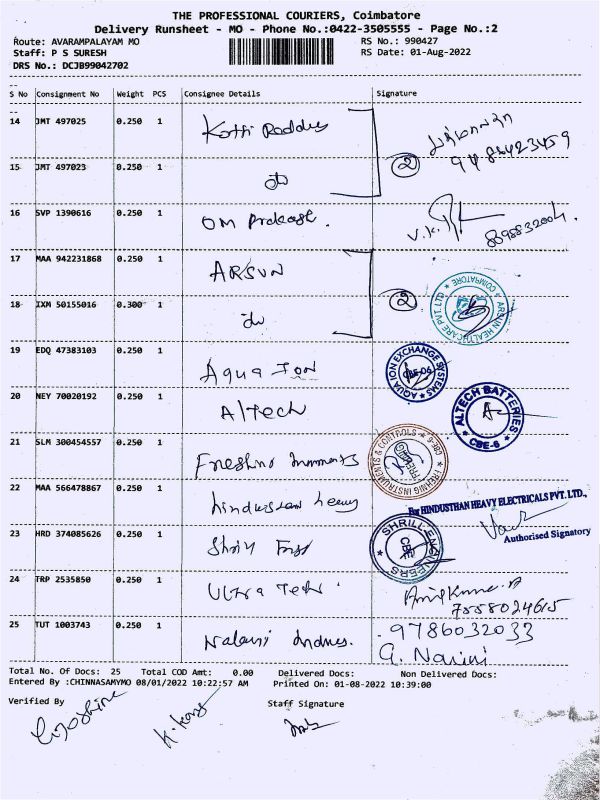 THE PROFESSIONAL COURIERS, Coimbatore
Delivery Runsheet - MO - Phone No.:0422-3505555 - Page No.:2
Route: AVARAMPALAYAM MO RS No.: 990427
Staff: P S SURESH RS Date: 01-Aug-2022
DRS No.: DCJB99042702
S No Consignment No Weight PCS Consignee Details Signature
14 JMT 497025 0.250 1
9488423459
15 JMT 497023 0.250 1 do 2
16 SVP 1390616 0.250 1 OM Prakash. 8098832004
17 MAA 942231868 0.250 1 ARSUN
18 IXM 50155016 0.300 1 do 2 ARSUN HEALTHCARE PVT LTD COIMBATORE
19 EDQ 47383103 0.250 1 Aqua Ion AQUAION EXCHANGE SYSTEMS CBE-06
20 NEY 70020192 0.250 1 Altech ALTECH BATTERIES CBE-6
21 SLM 300454557 0.250 1 INSTRUMENTS & CONTROLS CBE-6
22 MAA 566478867 0.250 1 hindustan heavy For HINDUSTHAN HEAVY ELECTRICALS PVT. LTD.,
Authorised Signatory
23 HRD 374085626 0.250 1 SHRILL ENGINEERS CBE
24 TRP 2535850 0.250 1 Ultra Tech Anil Kumar
7558024615
25 TUT 1003743 0.250 1 9786032033
Total No. Of Docs: 25 Total COD Amt: 0.00 Delivered Docs: Non Delivered Docs:
Entered By :CHINNASAMYMO 08/01/2022 10:22:57 AM Printed On: 01-08-2022 10:39:00
Verified By Staff Signature